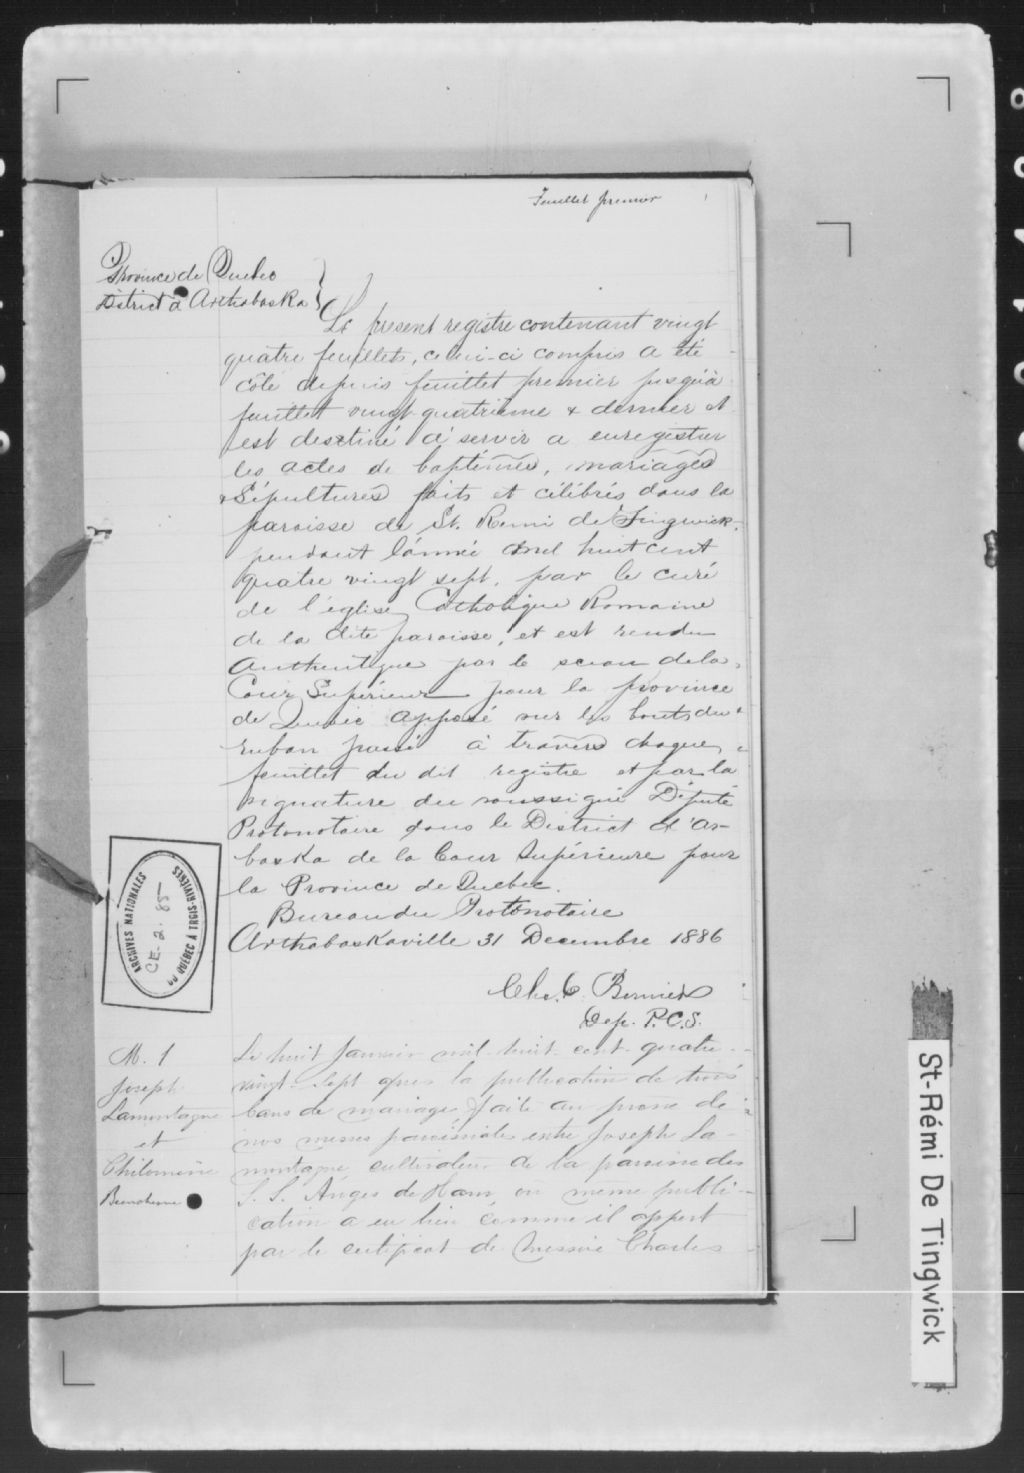 Feuillet premier
Province de Quebec
District d'Arthabaska
Le present registre contenant vingt
quatre feuillets, celui-ci compris a été
côté depuis feuillet premier jusqu'à
feuillet vingt quatrième & dernier et
est destiné à servir a enregistrer
les actes de baptêmes, mariages
& Sépultures faits et célébrés dans la
paroisse de St. Remi de Tingwick,
pendant l'année mil huit cent
quatre vingt sept, par le curé
de l'église Catholique Romaine
de la dite paroisse, et est rendu
Authentique par le sceau de la
Cour Supérieure pour la province
de Quebec apposé sur les bouts du
ruban passé à travers chaque
feuillet du dit registre et par la
signature du soussigné Député
Protonotaire dans le District d'Ar-
baska de la Cour Supérieure pour
la Province de Quebec.
Bureau du Protonotaire
Arthabaskaville 31 Decembre 1886
Chs. C. Bernier
Dep. P.C.S.
ARCHIVES NATIONALES
CE-2.85
DU QUÉBEC À TROIS-RIVIÈRES
M. 1
Joseph
Lamontagne
et
Philomène
Le huit Janvier mil-huit-cent-quatre-
vingt-sept après la publication de trois
bans de mariage faite au prone de
nos messes paroissiales entre Joseph La-
montagne cultivateur de la paroisse des
S. S. Anges de Ham où même publi-
cation a eu lieu comme il appert
par le certificat de Messire Charles
St-Rémi De Tingwick